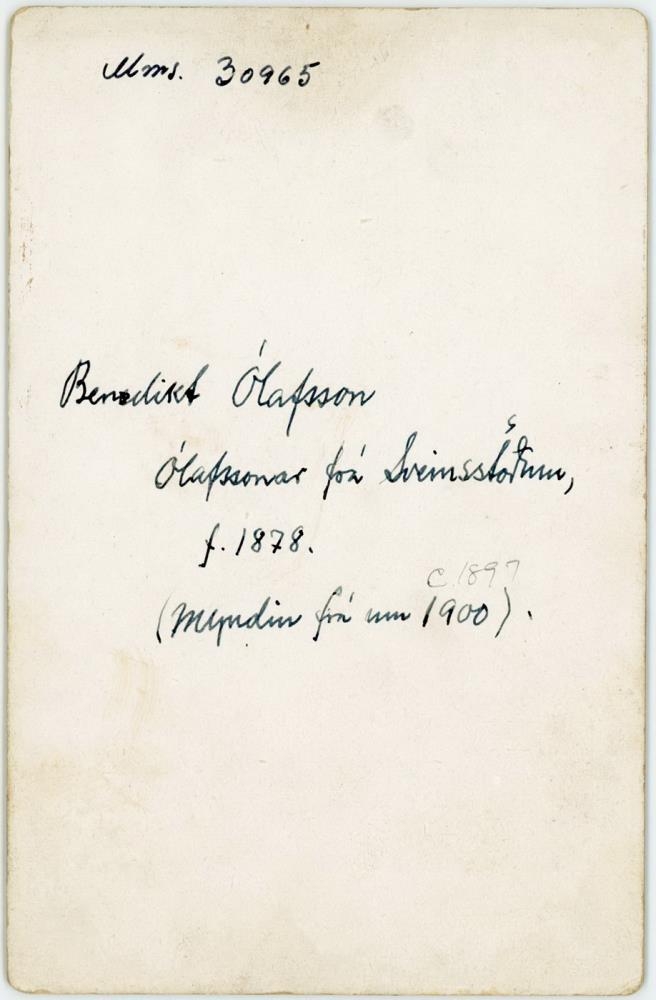 Mms. 30965
Benedikt Ólafsson
Ólafssonar frá Sveinsstöðum,
f. 1878.
c. 1897
(Myndin frá um 1900).